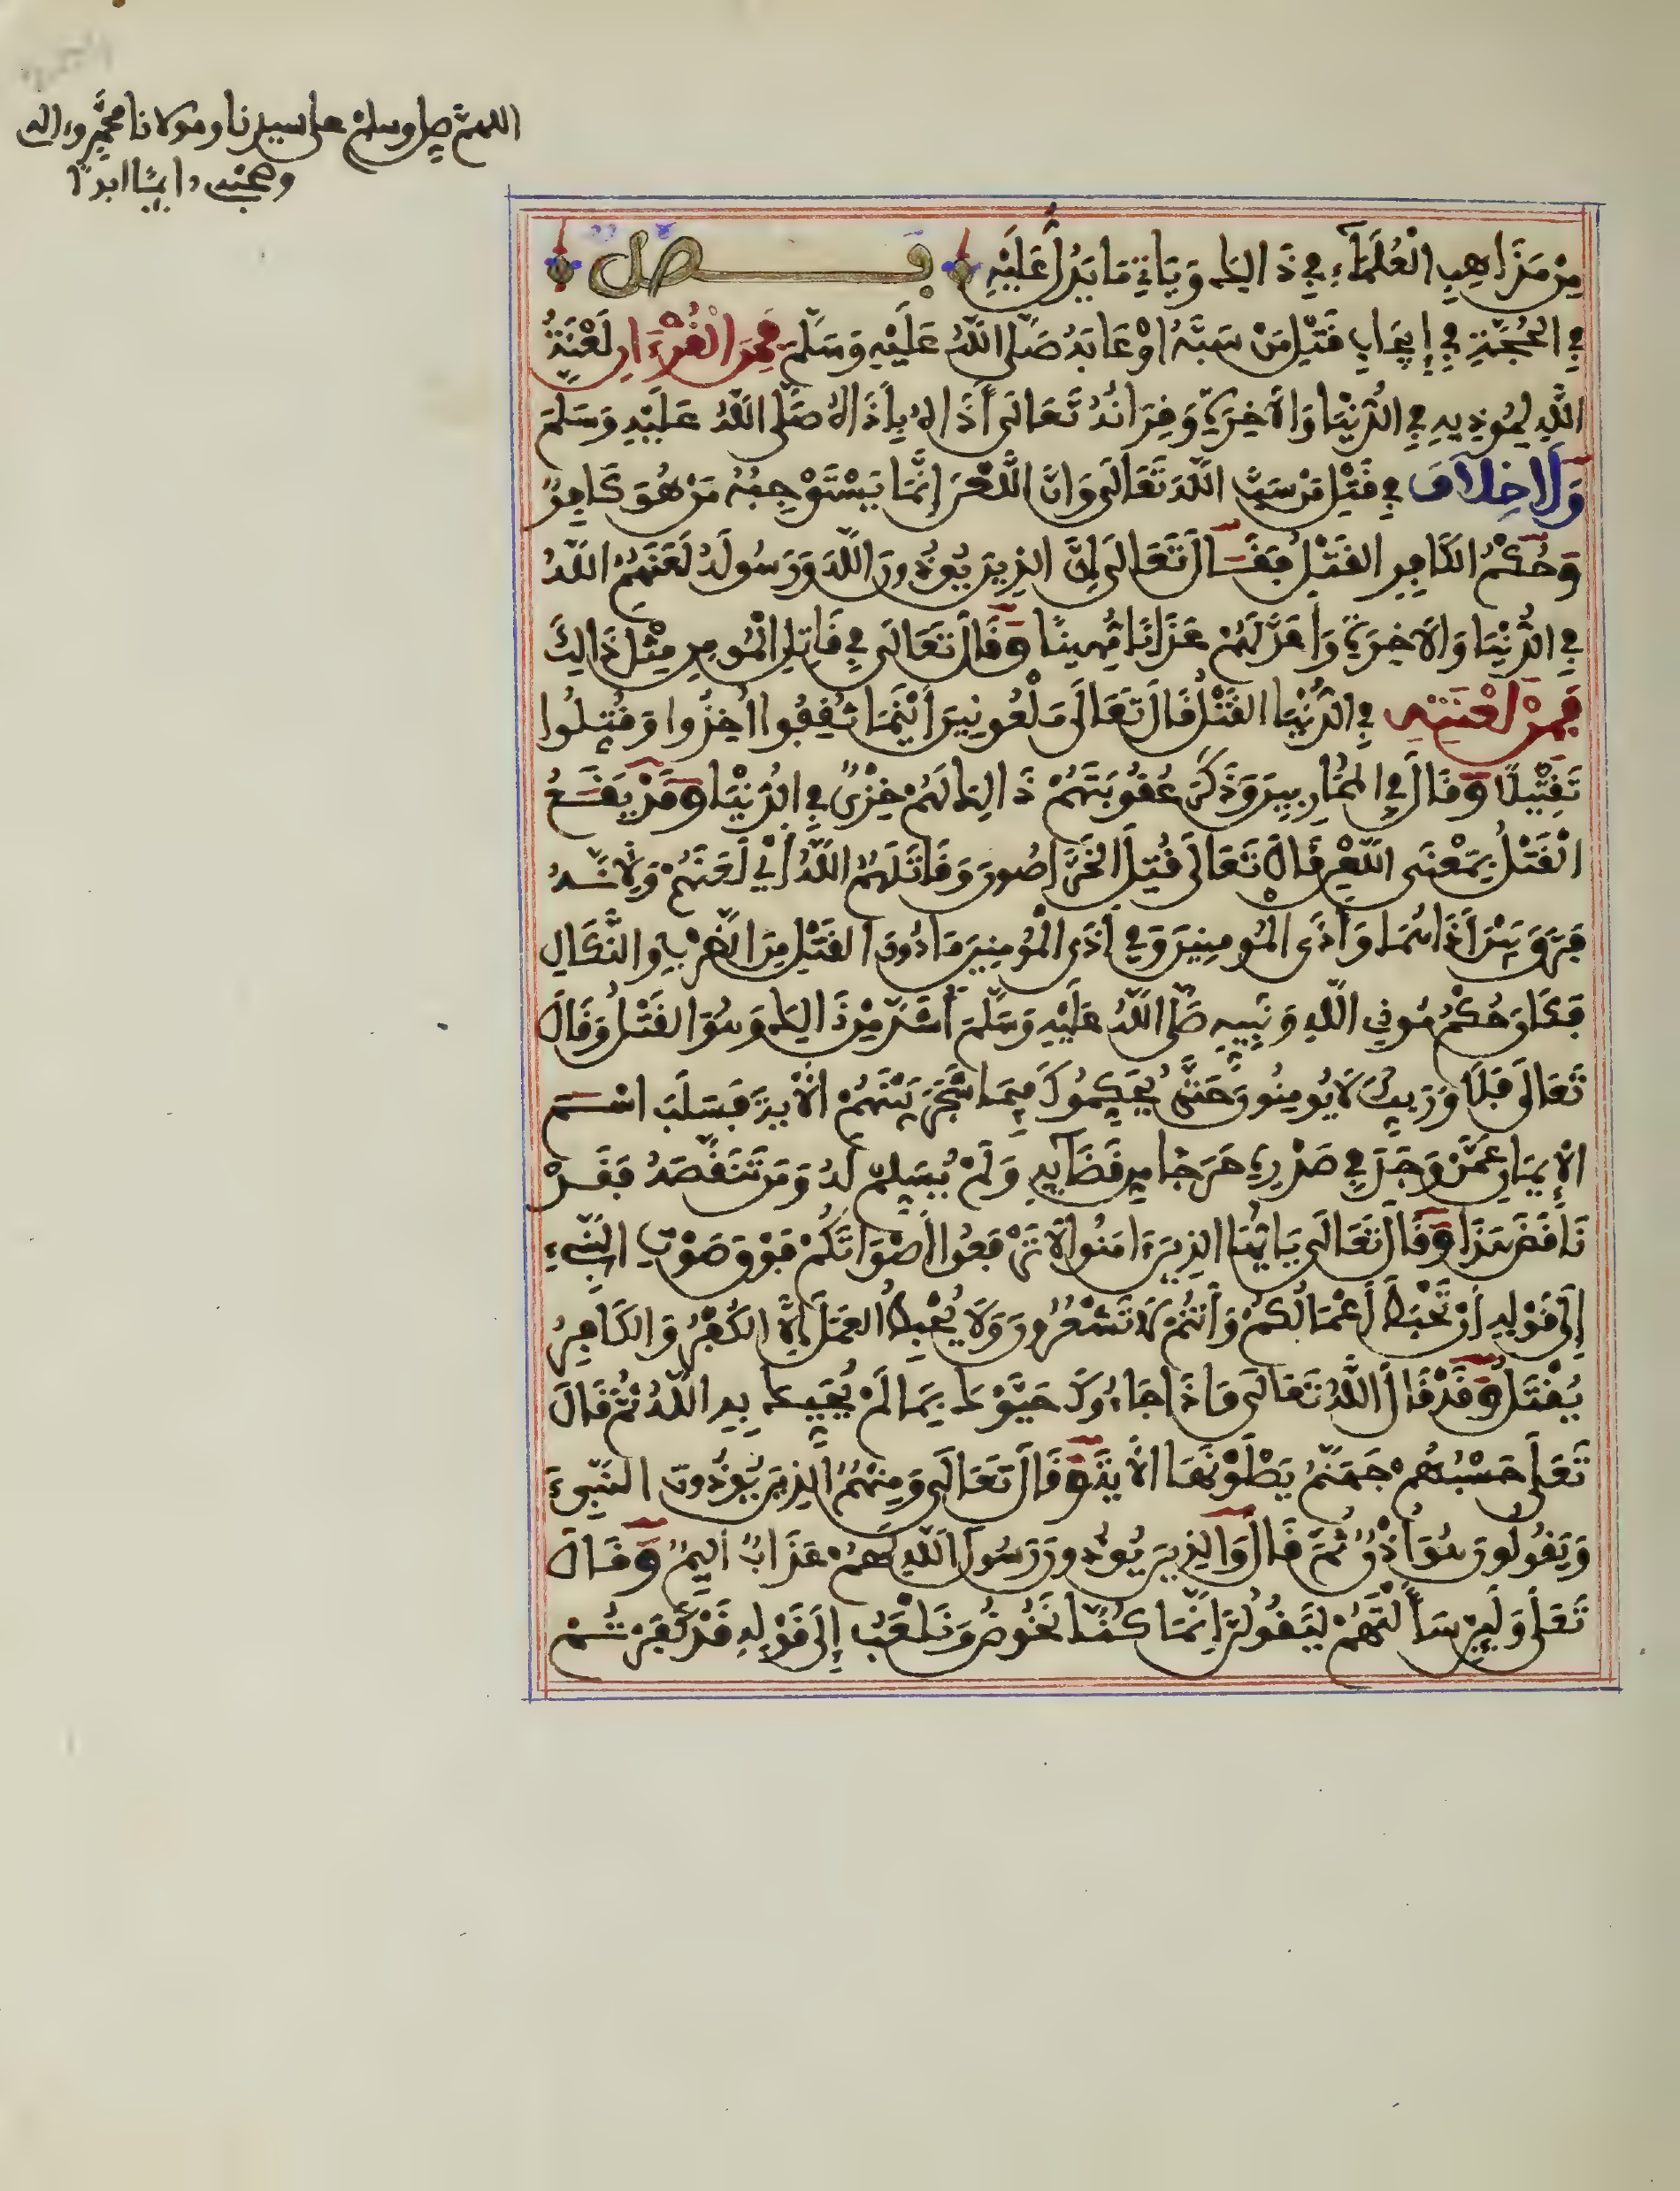 اللهم صل وسلم على سيدنا ومولانا محمد وءاله
وصحبه دايما ابدا
مِن مَذَاهِبِ الْعُلَمَاءِ فِي ذَالِكَ وَيَاتِي مَا يَدُلُّ عَلَيْهِ فصل
فِي الحُجَّةِ فِي إِيجَابِ قَتْلِ مَنْ سَبَّهُ اوْ عَابَهُ صَلَّى اللَّهُ عَلَيْهِ وَسَلَّمَ فَمِنَ الْقُرْءَانِ لَعْنَةُ
اللَّهِ لِمُوذِيهِ فِي الدُّنْيَا وَالاَخِرَةِ وَقِرَانُهُ تَعَالَى أَذَاهُ بِأَذَاهُ صَلَّى اللَّهُ عَلَيْهِ وَسَلَّمَ
وَلَا خِلَافَ فِي قَتْلِ مَن سَبَّ اللَّهَ تَعَالَى وَانَّ اللَّعْنَ إِنَّمَا يَسْتَوْجِبُهُ مَنْ هُوَ كَافِرٌ
وَحُكْمُ الكَافِرِ القَتْلُ فَقَالَ تَعَالَى إِنَّ الذِينَ يُوذُونَ اللَّهَ وَرَسُولَهُ لَعَنَهُمُ اللَّهُ
فِي الدُّنْيَا وَالاَخِرَةِ وَأَعَدَّ لَهُمْ عَذَابًا مُّهِينًا وَقَالَ تَعَالَى فِي قَاتِلِ الْمُومِنِ مِثْلَ ذَالِكَ
فَمِنْ لَعْنَتِهِ فِي الدُّنْيَا القَتْلُ قَالَ تَعَالَى مَلْعُونِينَ أَيْنَمَا ثُقِفُوا أُخِذُوا وَقُتِّلُوا
تَقْتِيلًا وَقَالَ فِي المُحَارِبِينَ وَذَكَرَ عُقُوبَتَهُمْ ذَالِكَ لَهُمْ خِزْيٌ فِي الدُّنْيَا وَقَدْ يَقَعُ
الْقَتْلُ بِمَعْنَى اللَّعْنِ قَالَ تَعَالَى قُتِلَ الخَرَّاصُونَ وَقَاتَلَهُمُ اللَّهُ أَيْ لَعَنَهُمْ وَلِأَنَّهُ
فَرَّقَ بَيْنَ أَذَاهُمَا وَأَذَى المُومِنِينَ وَفِي أَذَى الْمُومِنِينَ مَا دُونَ القَتْلِ مِنَ الضَّرْبِ وَالنَّكَالِ
فَكَانَ حُكْمُ مُوذِي اللَّهِ وَنَبِيِّهِ صَلَّى اللَّهُ عَلَيْهِ وَسَلَّمَ أَشَدَّ مِنْ ذَالِكَ وَهُوَ القَتْلُ وَقَالَ
تَعَالَى فَلَا وَرَبِّكَ لَا يُومِنُونَ حَتَّى يُحَكِّمُوكَ فِيمَا شَجَرَ بَيْنَهُمُ الْأَيَةَ فَسَلَبَ اسْمَ
الْإِيمَانِ عَمَّنْ وَجَدَ فِي صَدْرِهِ حَرَجًا مِن قَضَائِهِ وَلَمْ يُسَلِّمْ لَهُ وَمَن تَنَقَّصَهُ فَقَدْ
نَاقَضَ هَذَا وَقَالَ تَعَالَى يَأَيُّهَا الذِينَ ءَامَنُوا لَا تَرْفَعُوا أَصْوَاتَكُمْ فَوْقَ صَوْتِ النَّبِيءِ
إِلَى قَوْلِهِ أَنْ تَحْبَطَ أَعْمَالُكُمْ وَأَنتُمْ لَا تَشْعُرُونَ وَلَا يُحْبِطُ العَمَلَ إِلَّا الكُفْرُ وَالكَافِرُ
يُقْتَلُ وَقَدْ قَالَ اللَّهُ تَعَالَى وَإِذَا جَاءُوكَ حَيَّوْكَ بِمَا لَمْ يُحَيِّكَ بِهِ اللَّهُ ثُمَّ قَالَ
تَعَلَى حَسْبُهُمْ جَهَنَّمُ يَصْلَوْنَهَا الْأَيَةَ وَقَالَ تَعَالَى وَمِنْهُمُ الذِينَ يُوذُونَ النَّبِيءَ
وَيَقُولُونَ هُوَ أُذُنٌ ثُمَّ قَالَ وَالذِينَ يُوذُونَ رَسُولَ اللَّهِ لَهُمْ عَذَابٌ أَلِيمٌ وَقَالَ
تَعَلَى وَلَئِن سَأَلْتَهُمْ لَيَقُولُنَّ إِنَّمَا كُنَّا نَخُوضُ وَنَلْعَبُ إِلَى قَوْلِهِ قَدْ كَفَرْتُمْ